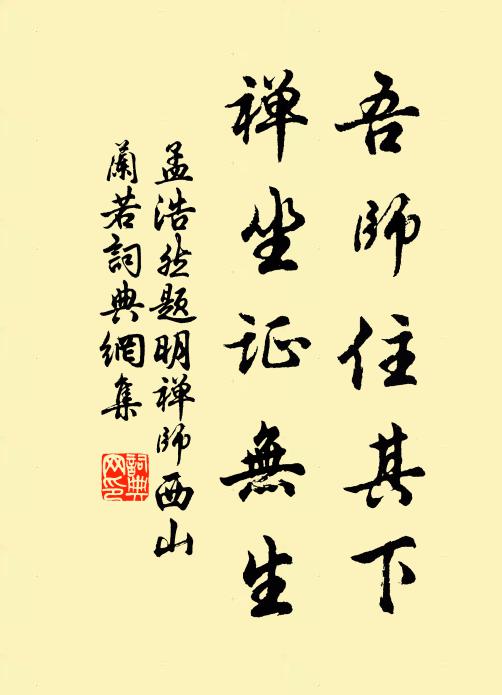 吾師住其下
禅坐证無生
孟浩然题明禅師西山
蘭若詞典網集
詞典
网印